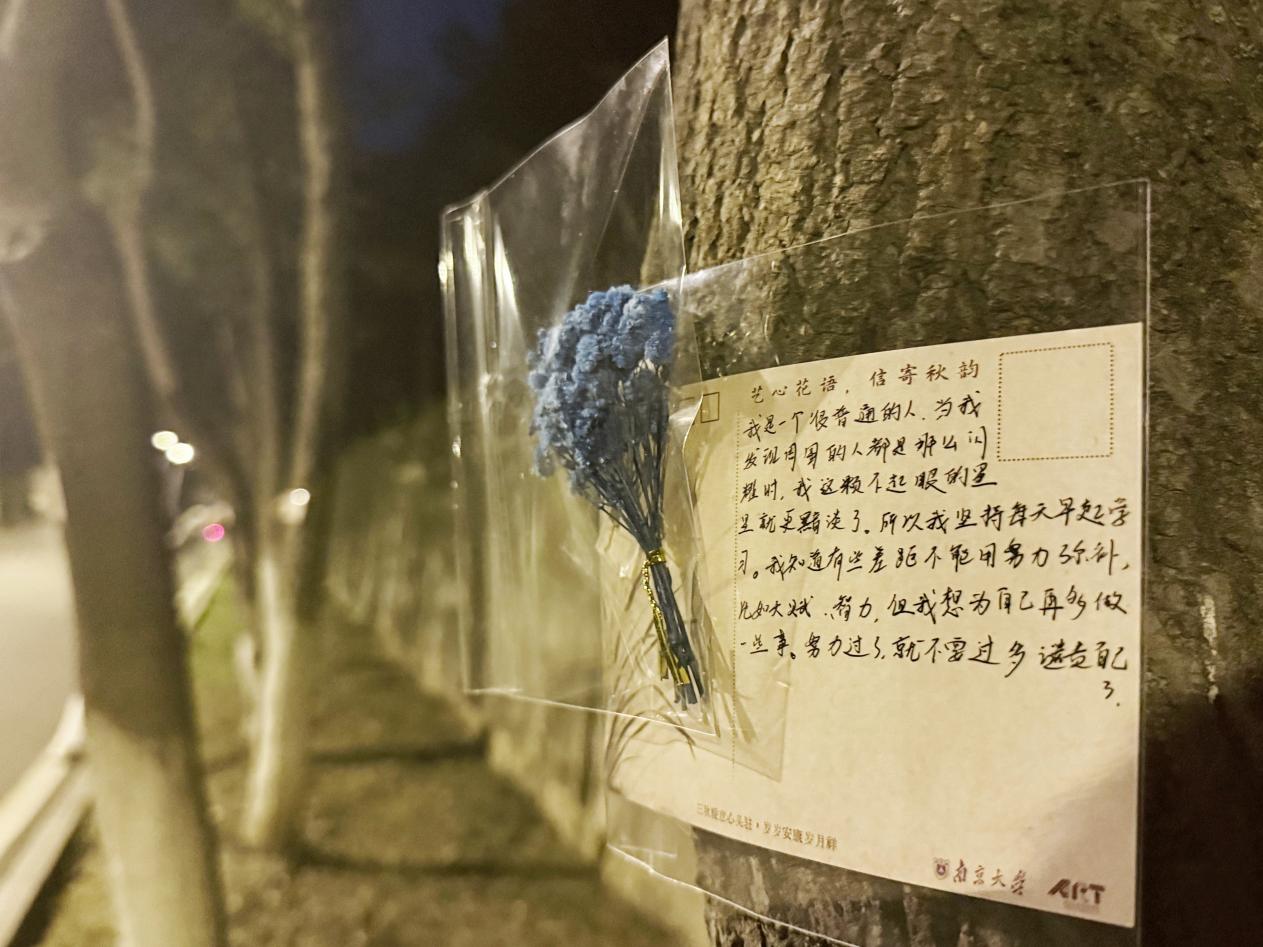 艺心花语，信寄秋韵
我是一个很普通的人，当我
发现周围的人都是那么闪
耀时，我这颗不起眼的星
星就更黯淡了。所以我坚持每天早起学
习。我知道有些差距不能用努力弥补，
比如天赋、智力，但我想为自己再多做
一些事。努力过了，就不要过多谴责自己
了。
岁岁安康岁月祥
南京大学
ART